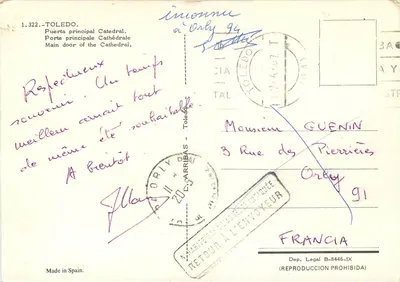 1.322.-TOLEDO.
Puerta principal Catedral.
Porte principale Cathédrale
Main door of the Cathedral.
inconnu
à Orly 94
TOLEDO
Respectueux
souvenir Un temps
meilleur aurait tout
de même été souhaitable.
A bientôt
ARRIBAS - Toledo
Monsieur GUENIN
3 Rue des Pierrières
Orly
91
FRANCIA
ORLY
RETOUR A L'ENVOYEUR
Made in Spain.
Dep. Legal B-8446-IX
(REPRODUCCION PROHIBIDA)